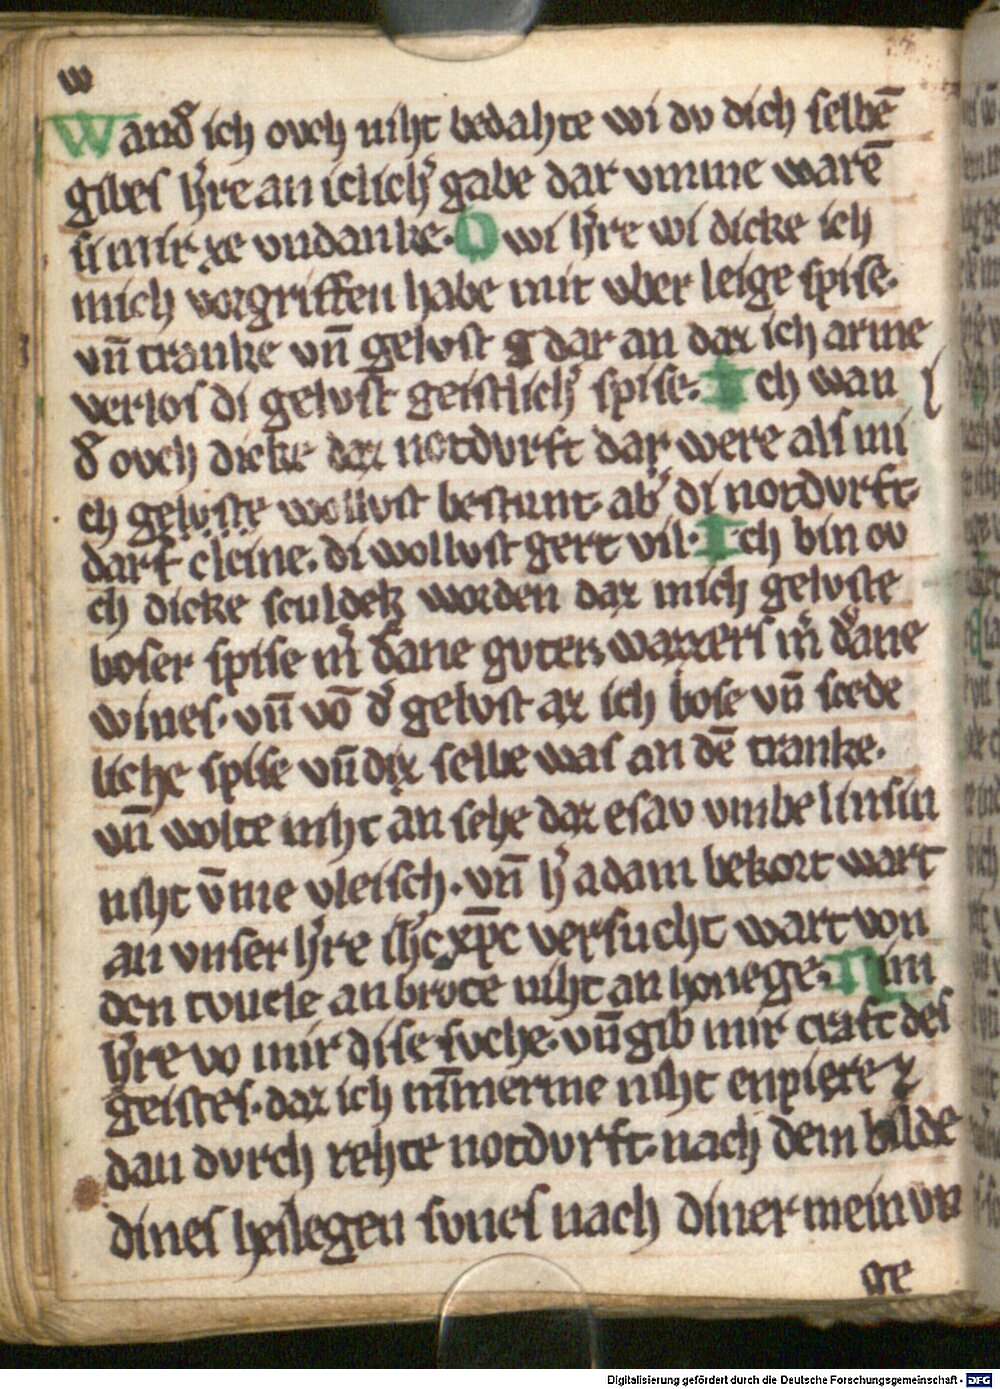 w
Wand͛ ich ovch niht bedahte wi dv dich selbē
gibes h͛re an iclich͛ gabe dar vmme warē
si mir ze vndanke. O wi h͛re wi dicke ich
mich vorgriffen habe mit vber leige spise.
vn̄ tranke vn̄ gelvst g dar an daz ich arme
verlos di gelvst geistlich͛ spise. Ich wan
d͛ ovch dicke daz notdvrft dar were als mi
ch gelvste wollvst bestunt. ab͛ di notdvrft.
darf cleine. di wollvst gert vil. Ich bin ov
ch dicke sculdek worden daz mich gelvste
boser spise m͛ d͛ane guter, wazzers m͛ d͛ane
wines. vn̄ vō d͛ gelvst az ich bose vn̄ scede
liche spise vn̄ diz selbe was an dē tranke.
vn̄ wolte niht an sehe daz esav vmbe linsin
niht v̄me vleisch. vn̄ h͛ adam bekort wart
an vnser h͛re ih͛c xp̄c versucht wart von
den tvuele an brote niht an honege. Nim
h͛re vo mir dise svche. vn̄ gib mir craft des
geistes. daz ich nīmerme niht enpizere
dan dvrch rehte notdvrft. nach dem bilde
dines heilegen svnes nach diner mein vn
ge
Digitalisierung gefördert durch die Deutsche Forschungsgemeinschaft - DFG